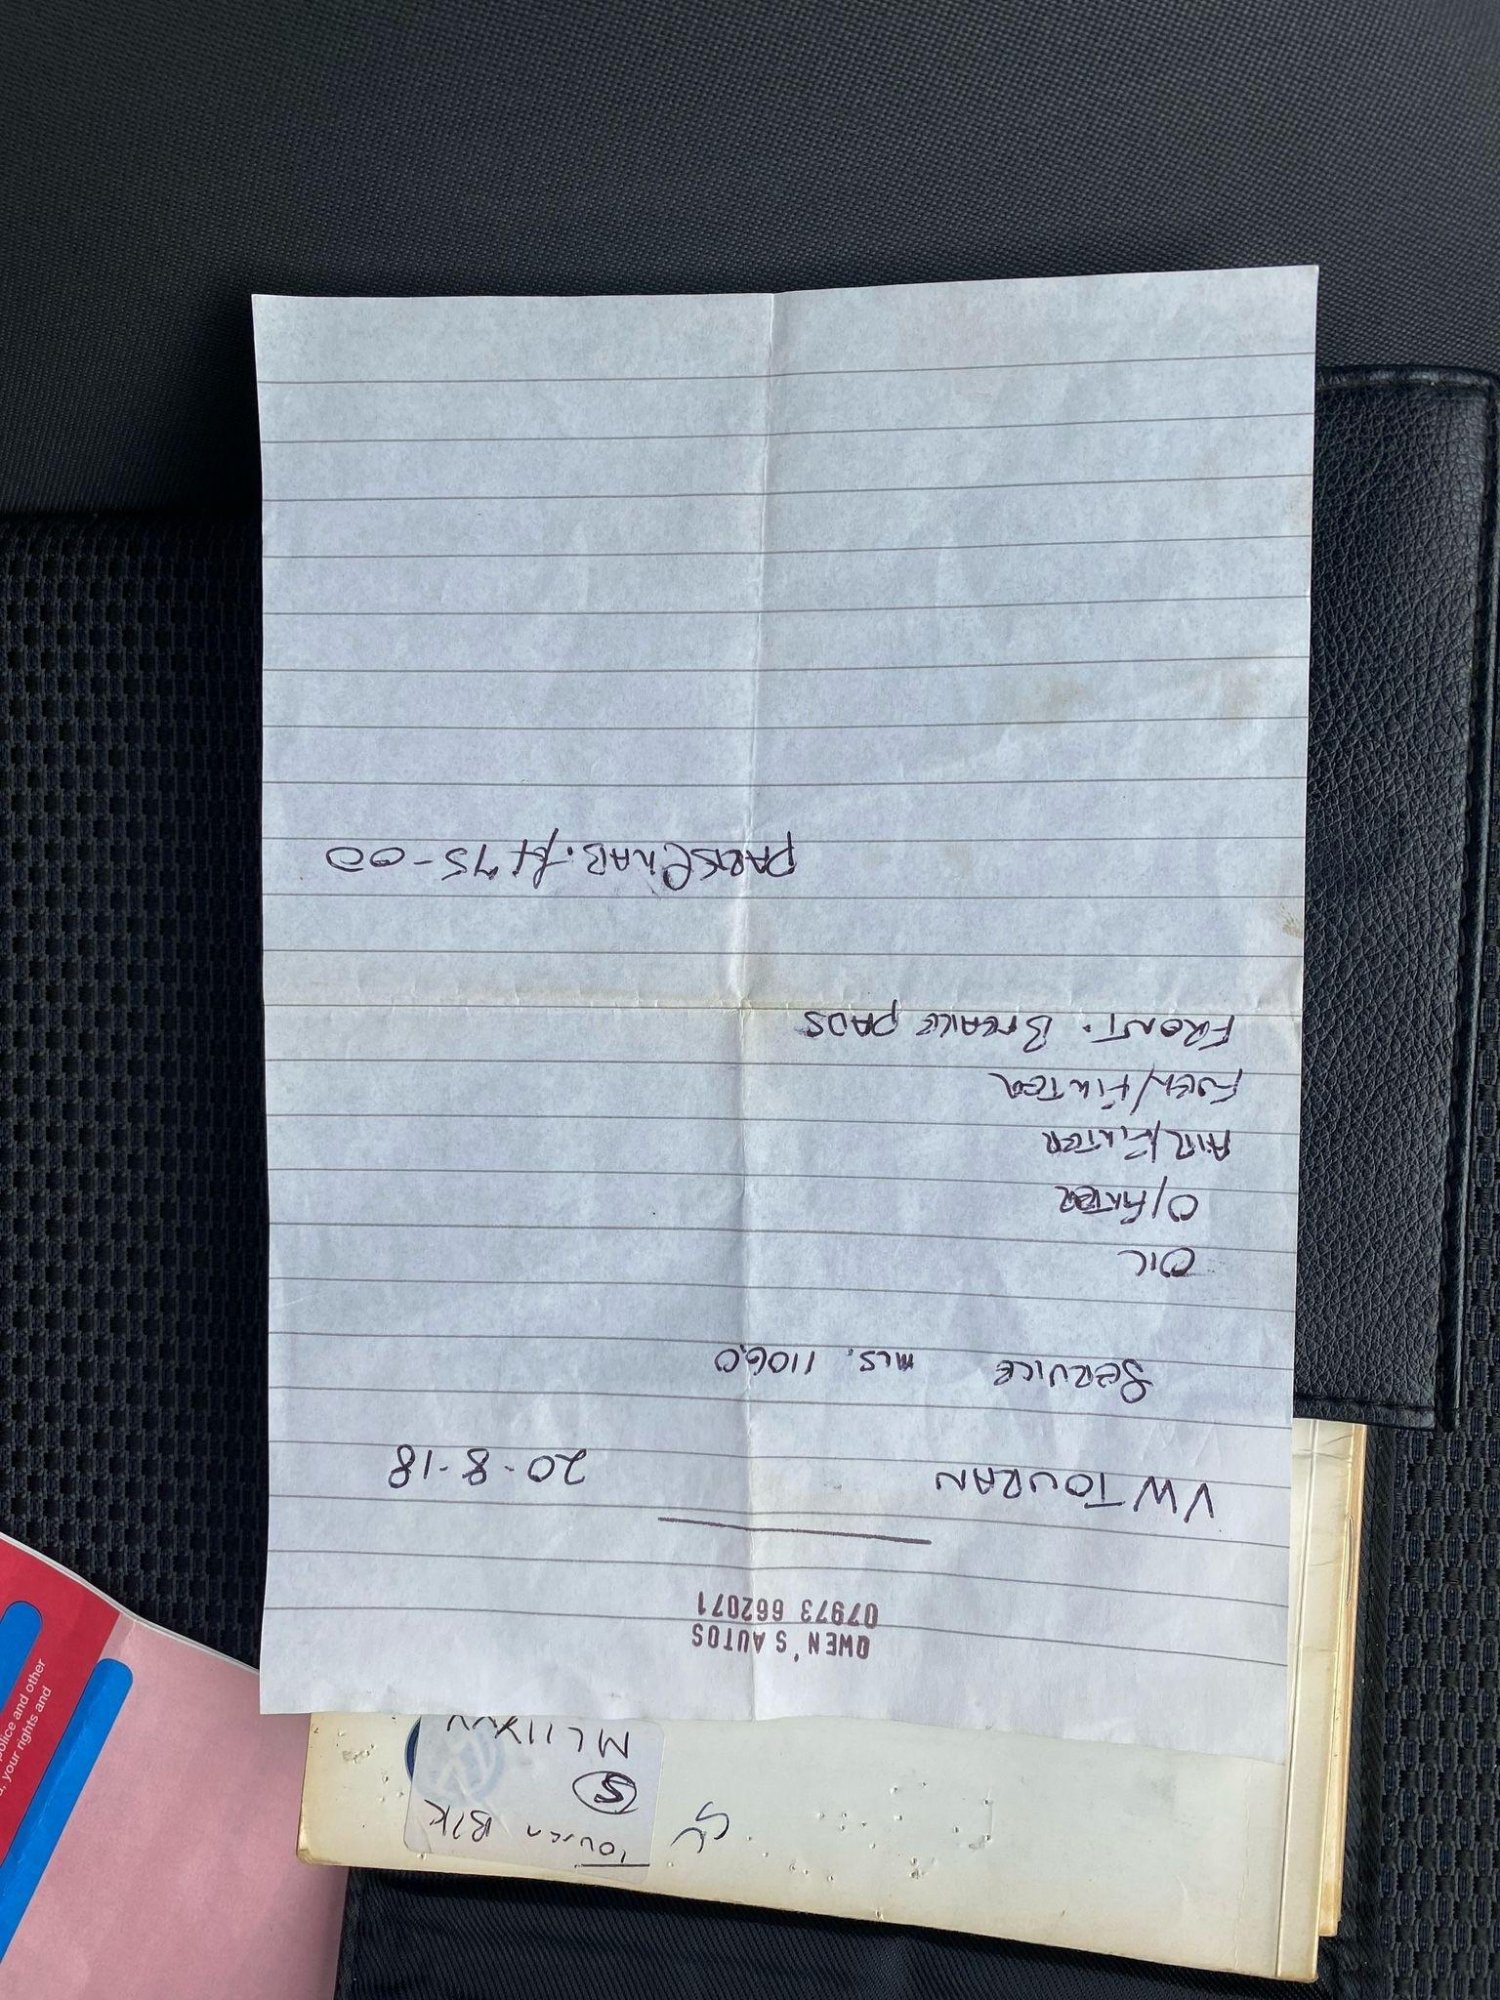 OWEN'S AUTOS
07973 662071
VW TOURAN 20-8-18
SERVICE MLS. 11060
OIL
O/FILTER
AIR/FILTER
FUEL/FILTER
FRONT. BREAKE PADS
PARTS/LAB. £475-00
ML11XVV
5
Touran BLK
police and other
your rights and